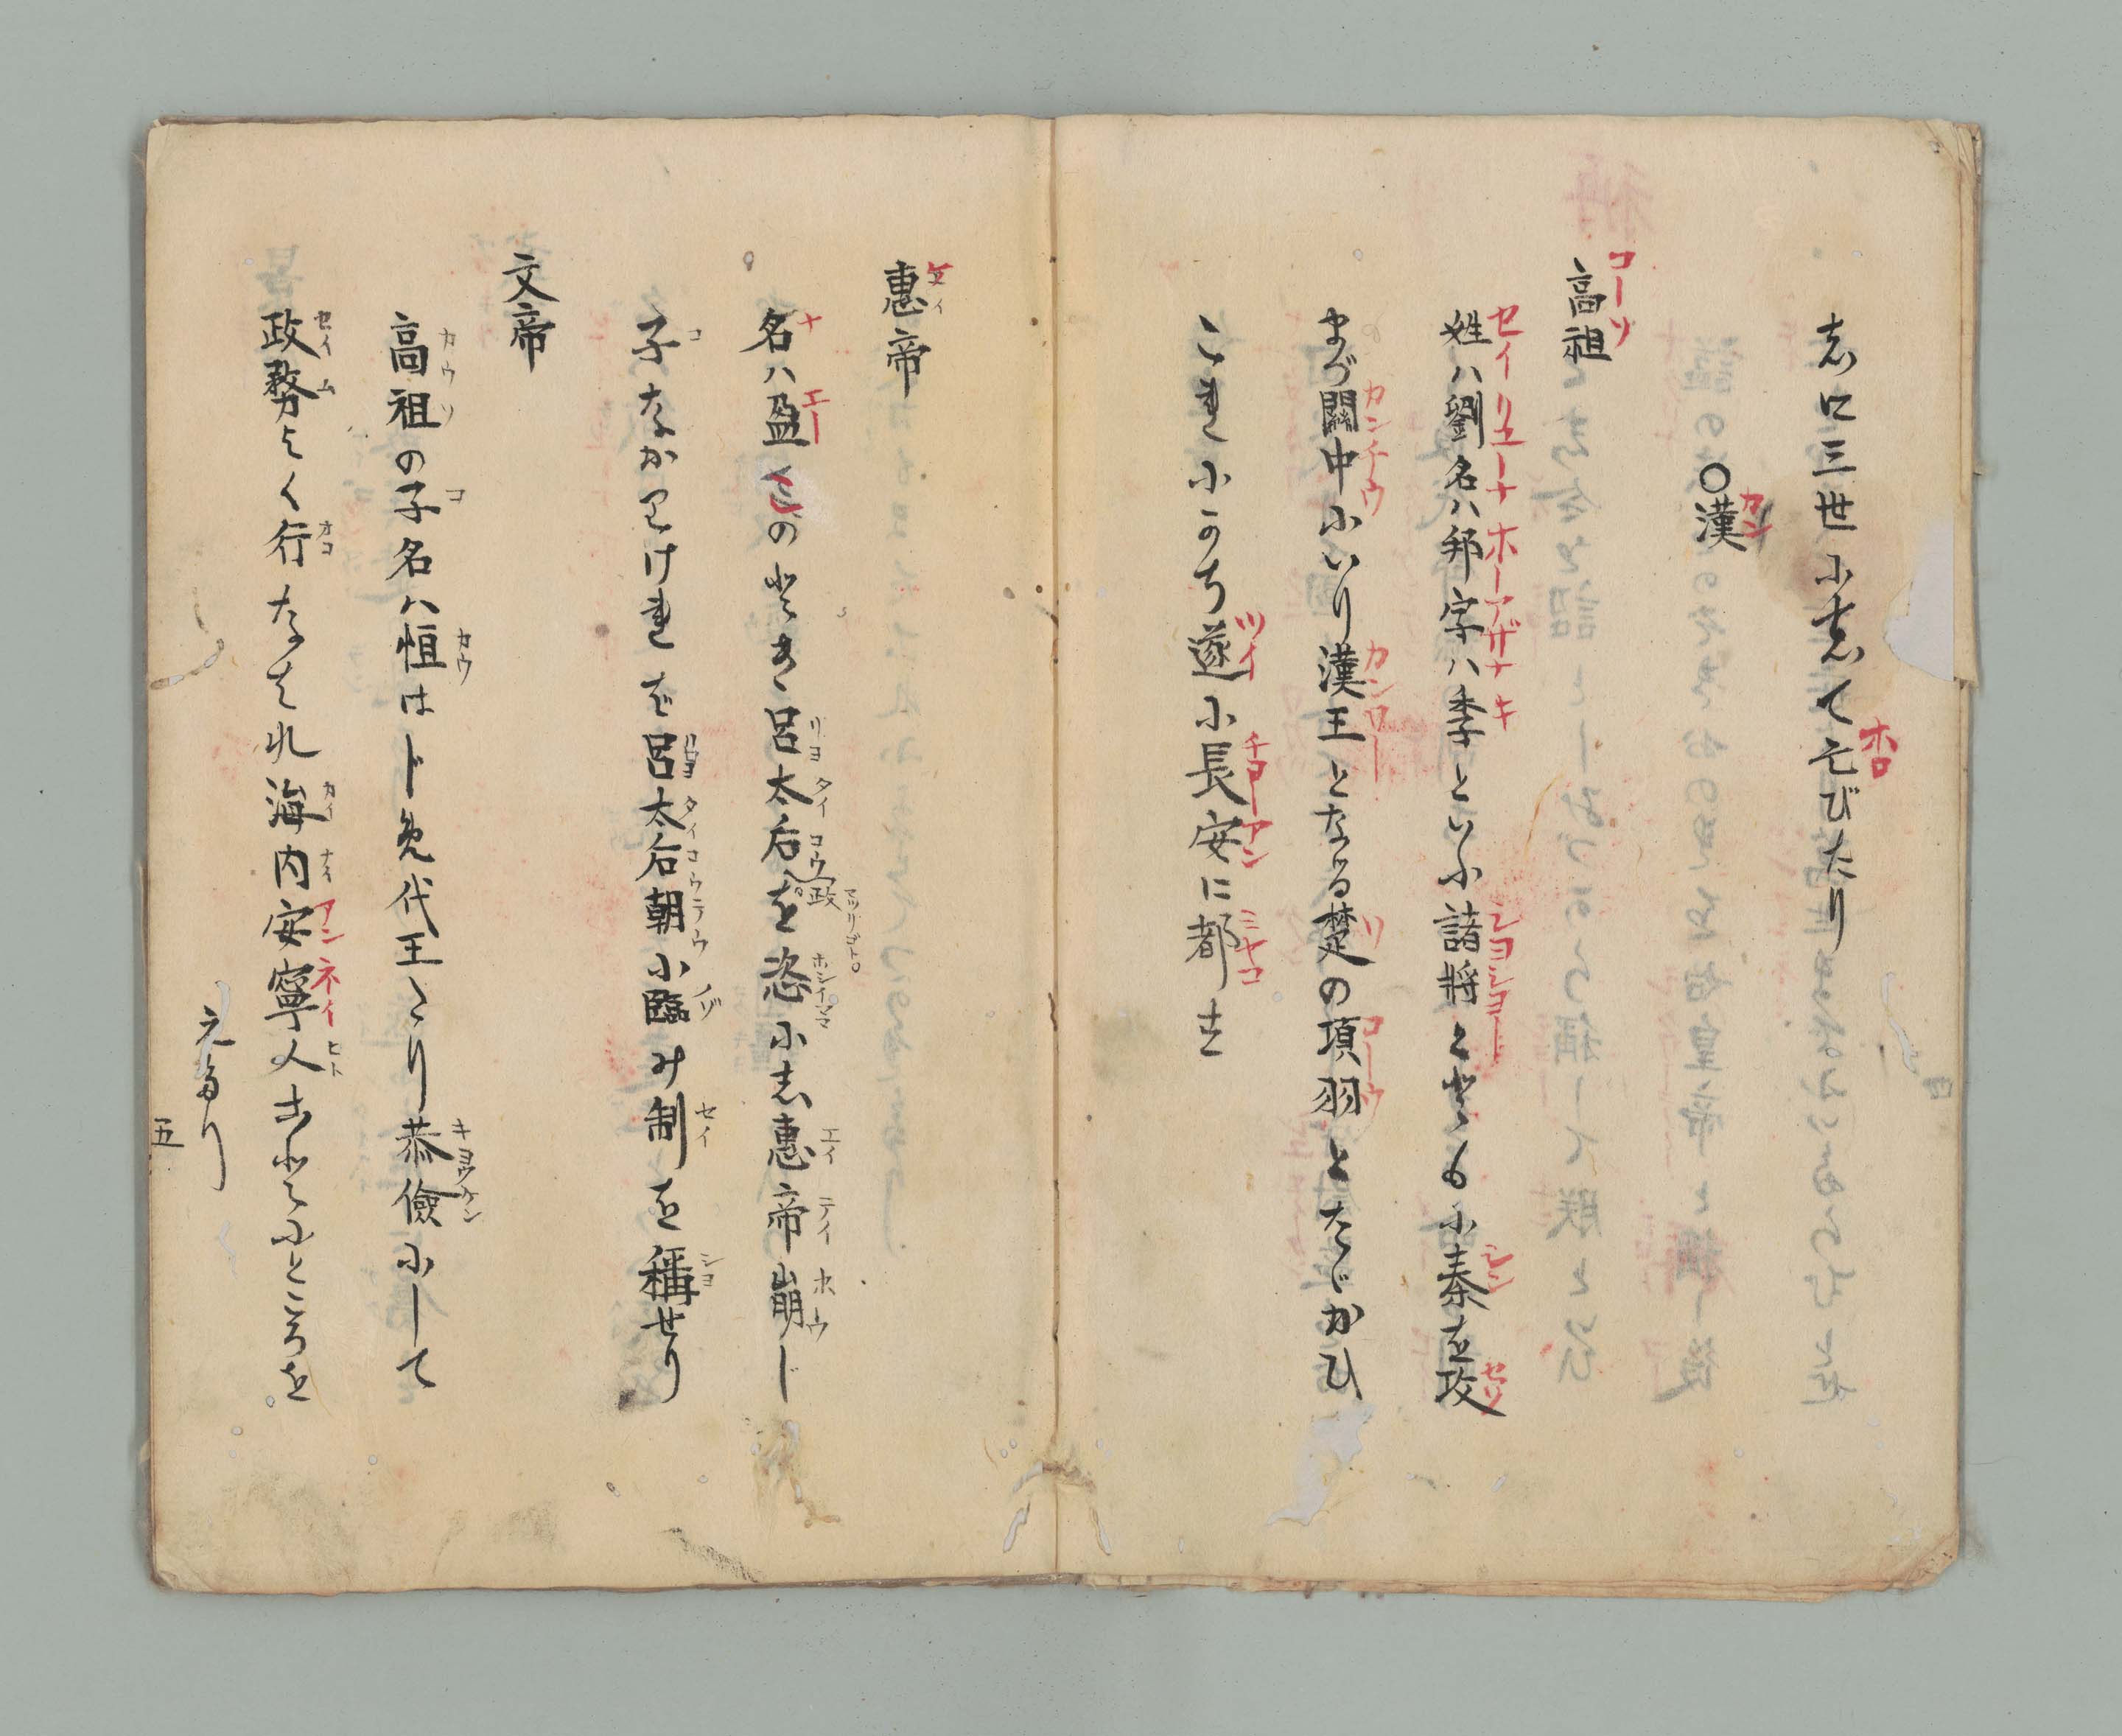 志口三世尓志て亡びたり
〇漢
高祖
姓ハ劉名ハ邦字ハ季といふ諸将ととゝも尓秦を攻
まづ關中尓いり漢王となる楚の項羽とたゝかひ
これ尓かち遂尓長安に都す
惠帝
名ハ盈この時呂太后政を恣尓志惠帝崩じ
子なかりけれど呂太后朝尓臨み制を稱せり
文帝
高祖の子名ハ恒はじめ代王より恭儉尓して
政務よく行なされ海内安寧人古とふところを
えたり
五